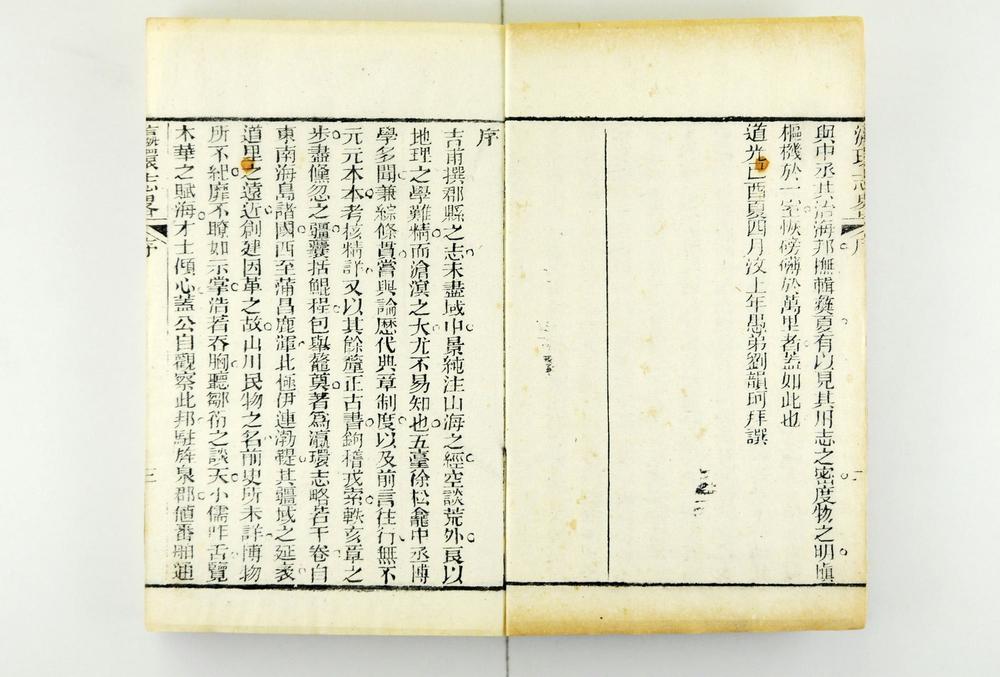 與中丞其治海邦撫輯蕤夏有以見其用志之密度物之明愼
樞機於一室恢磅礴於萬里者蓋如此也
道光己酉夏四月汶上年愚弟劉韻珂拜譔
序
吉甫撰郡縣之志未盡域中景純注山海之經空談荒外良以
地理之學難精而滄溟之大尤不易知也五臺徐松龕中丞博
學多聞兼綜條貫嘗與論歷代典章制度以及前言往行無不
元元本本考核精詳又以其餘釐正古書鉤稽戎索軼亥章之
步盡儵忽之疆囊括鯤程包舉鼇奠著為瀛環志略若干卷自
東南海島諸國西至蒲昌鹿渾北極伊連渤鞮其疆域之延袤
道里之遠近創建因革之故山川民物之名前史所未詳博物
所不紀靡不瞭如示掌浩若吞胸聽鄒衍之談天小儒咋舌覽
木華之賦海才士傾心蓋公自觀察此邦駐旌泉郡値番舶通
瀛環志畧 序 三